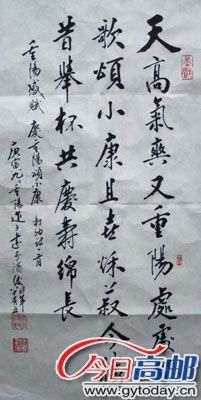 天高氣爽又重陽處處
歌頌小康且喜今
昔舉杯共慶壽綿長
重陽感賦 慶重陽頌小康 打油詩一首
庚寅九九重陽
今日高邮
www.gytoday.cn